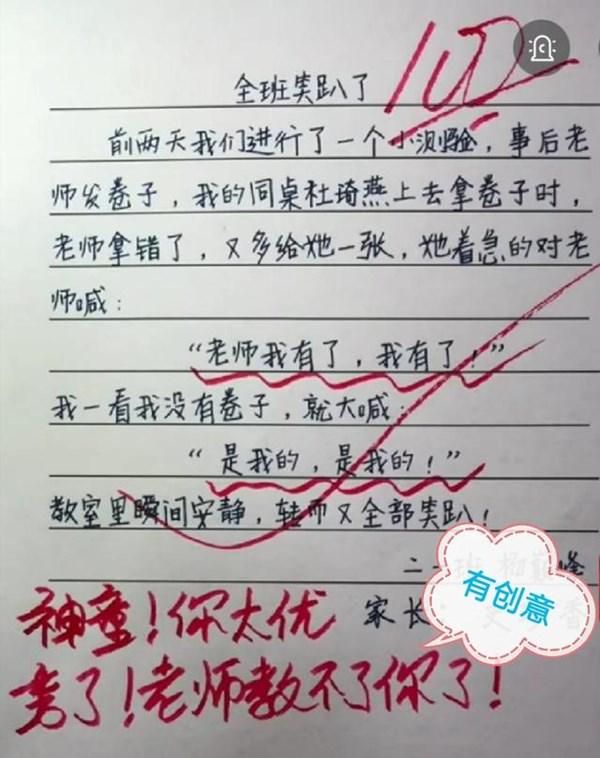 100
全班笑趴了
前两天我们进行了一个小测验，事后老
师发卷子，我的同桌杜琦燕上去拿卷子时，
老师拿错了，又多给她一张，她着急的对老
师喊：
“老师我有了，我有了！”
我一看我没有卷子，就大喊：
“是我的，是我的！”
教室里瞬间安静，转而又全部笑趴！
二 班
家长：
有创意
神童！你太优
秀了！老师教不了你了！